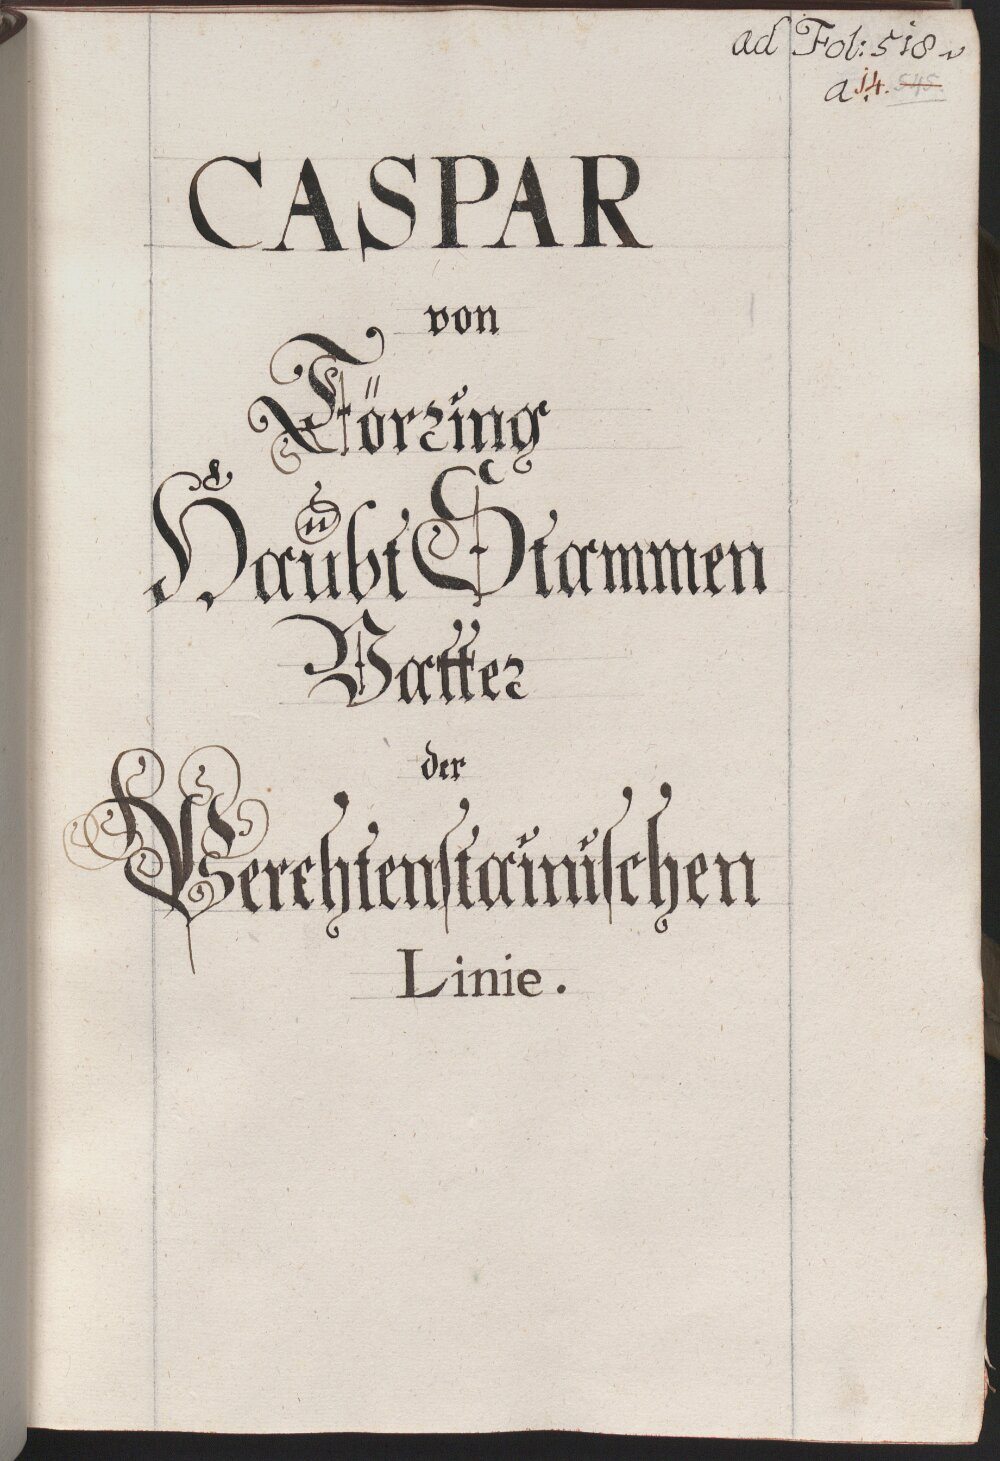 ad Fol: 518
a 14. 545.
CASPAR
von
Törring
Haubt Stammen
Vatter
der
Perchtenstainischen
Linie.